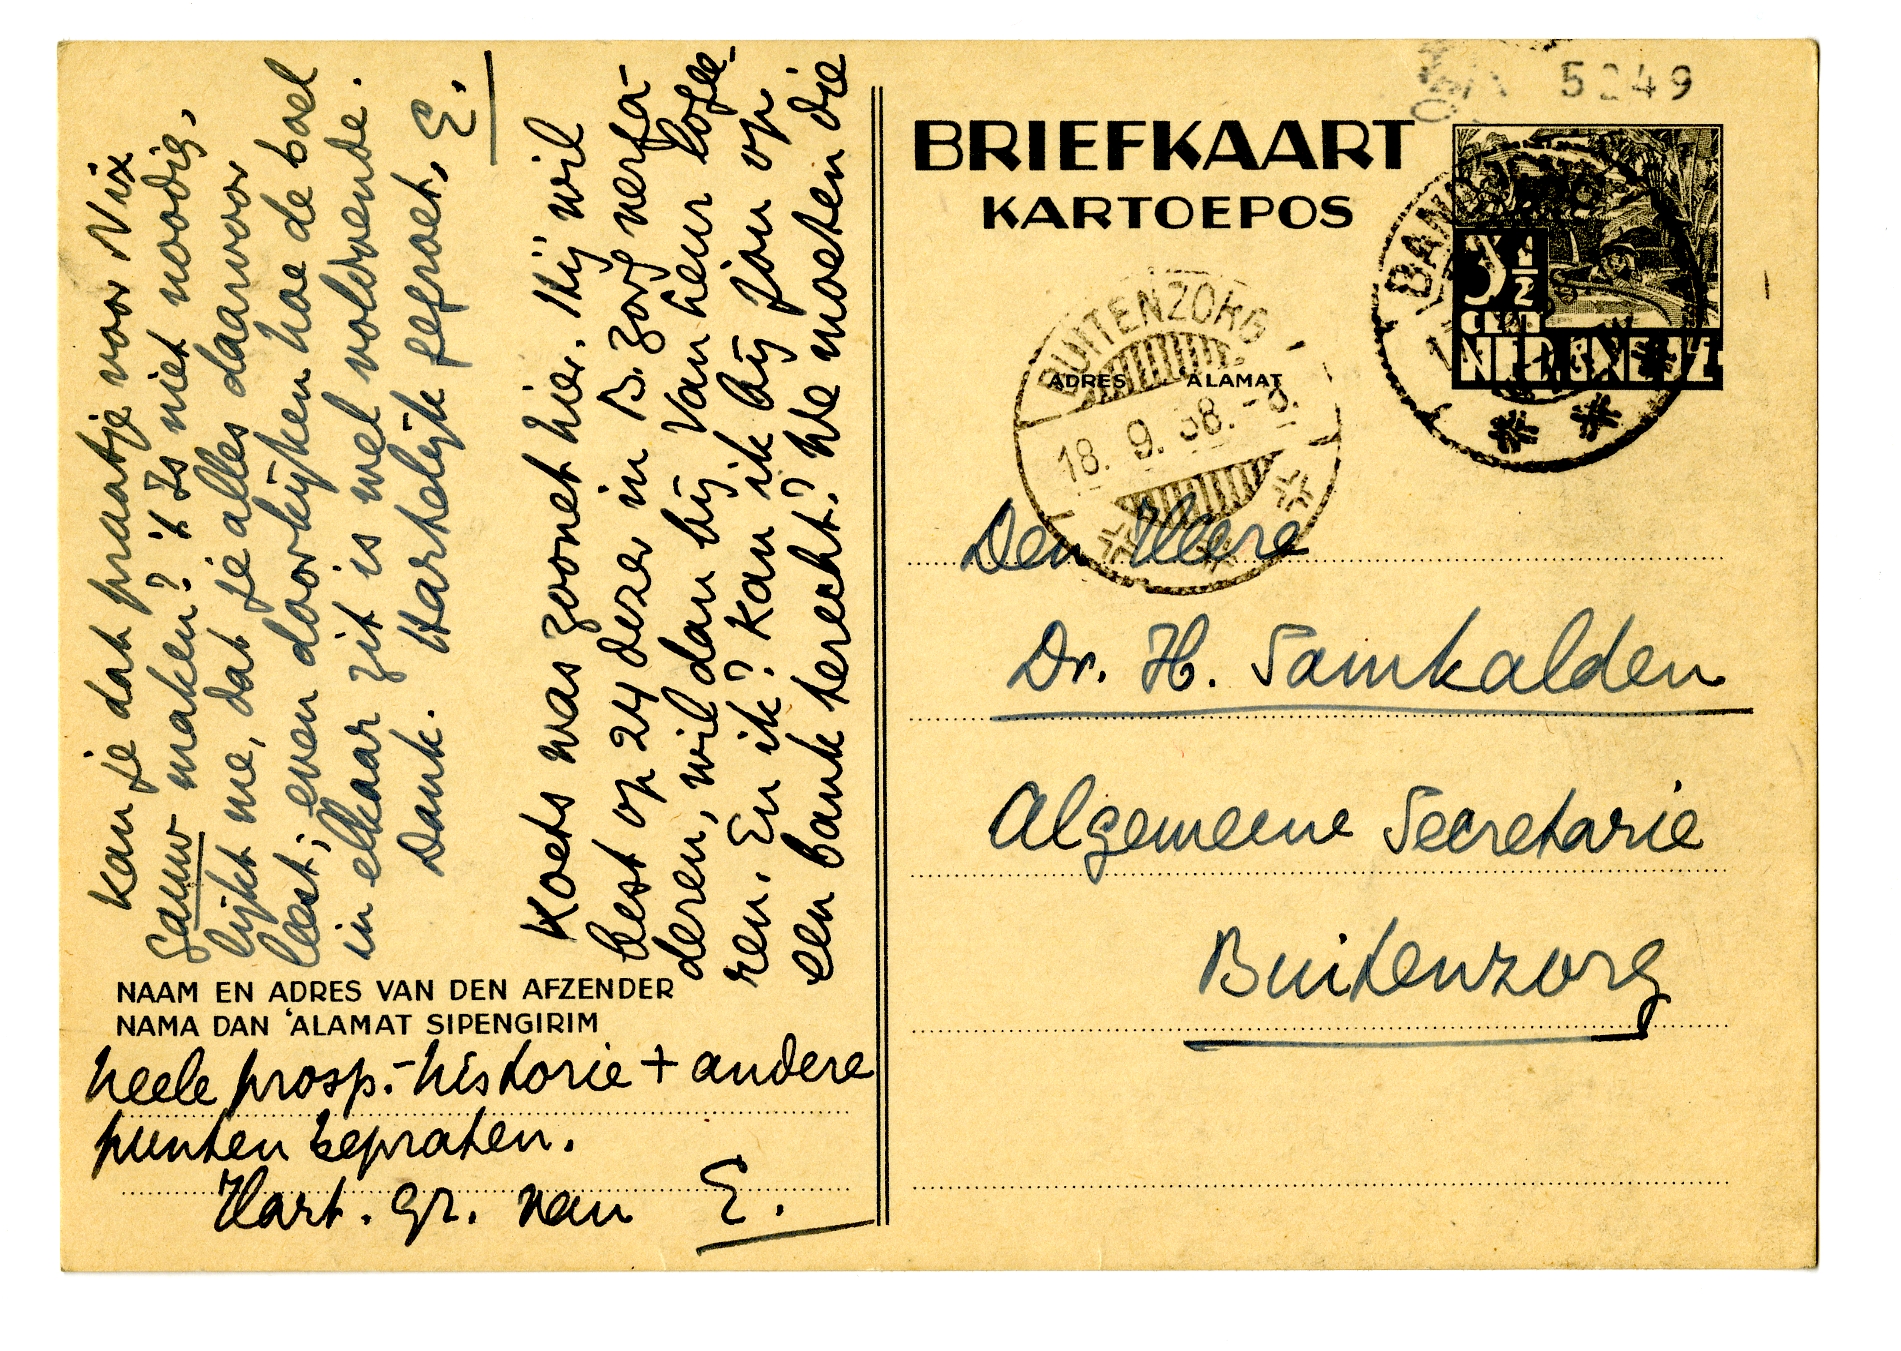 Kan je dat praatje voor Nix
gauw maken? 't Is niet noodig,
lijkt me, dat je alles daarvoor
leest; even doorkijken hoe de boel
in elkaar zit is wel voldoende.
Dank. Hartelijk gegroet, E.
Koets was zoonet hier. Hij wil
best op 24 dezer in B.zorg verga-
deren, wil dan bij Van heur logee-
ren. En ik? Kan ik bij jou op
een bank terecht? We moeten die
NAAM EN ADRES VAN DEN AFZENDER
NAMA DAN 'ALAMAT SIPENGIRIM
heele prosp.-historie + andere
punten bepraten.
Hart. gr. van E.
5249
BRIEFKAART
KARTOEPOS
3½
CENT
NED. INDIE
BUITENZORG
18. 9. 38.
ADRES 'ALAMAT
Den Heere
Dr. H. Samkalden
Algemeene Secretarie
Buitenzorg